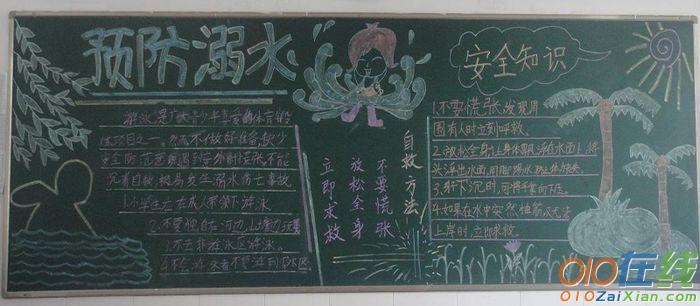 预防溺水
游泳是广大青少年喜爱的体育锻
炼项目之一。然而不做好准备、缺少
安全防范意识遇到意外时慌张、不能
沉着自救，极易发生溺水伤亡事故。
1.小学生六在成人带领下游泳
2.不要独自在河边、山塘边玩耍
3.不去非游泳区游泳。
4.不会游泳者不要游到深水区
自救方法
不要慌张
放松全身
立即求救
安全知识
1.不要慌张，发现周
围有人时立刻呼救。
2.放松全身，让身体飘浮在水面上，将
头浮出水面，用脚踢水
3.身体下沉时，可将手掌向下压。
4.如果在水中突然抽筋，又无法
上岸时，立即求救。
010在线
010ZaiXian.com